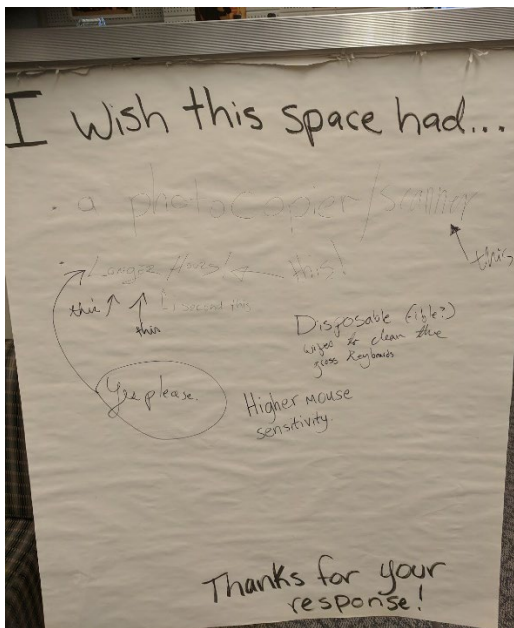 I wish this space had...
· a photocopier/scanner
this
· Longer Hours! this!
this this I second this
Disposable (-ible?)
wipes to clean the
gross Keyboards
Yes please.
Higher mouse
sensitivity.
Thanks for your
response!